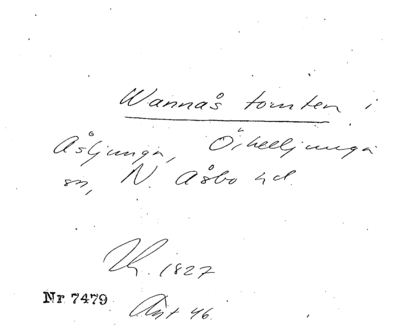 Wannås tomten i
Åsljunga, Örkelljunga
sn, N. Åsbo hd.
1827
Nr 7479
Ant 46.